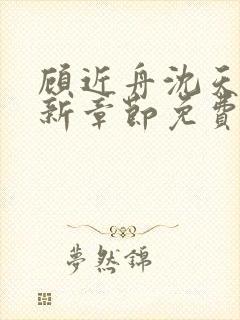 顾近舟沈天
新章節免費
夢然錦